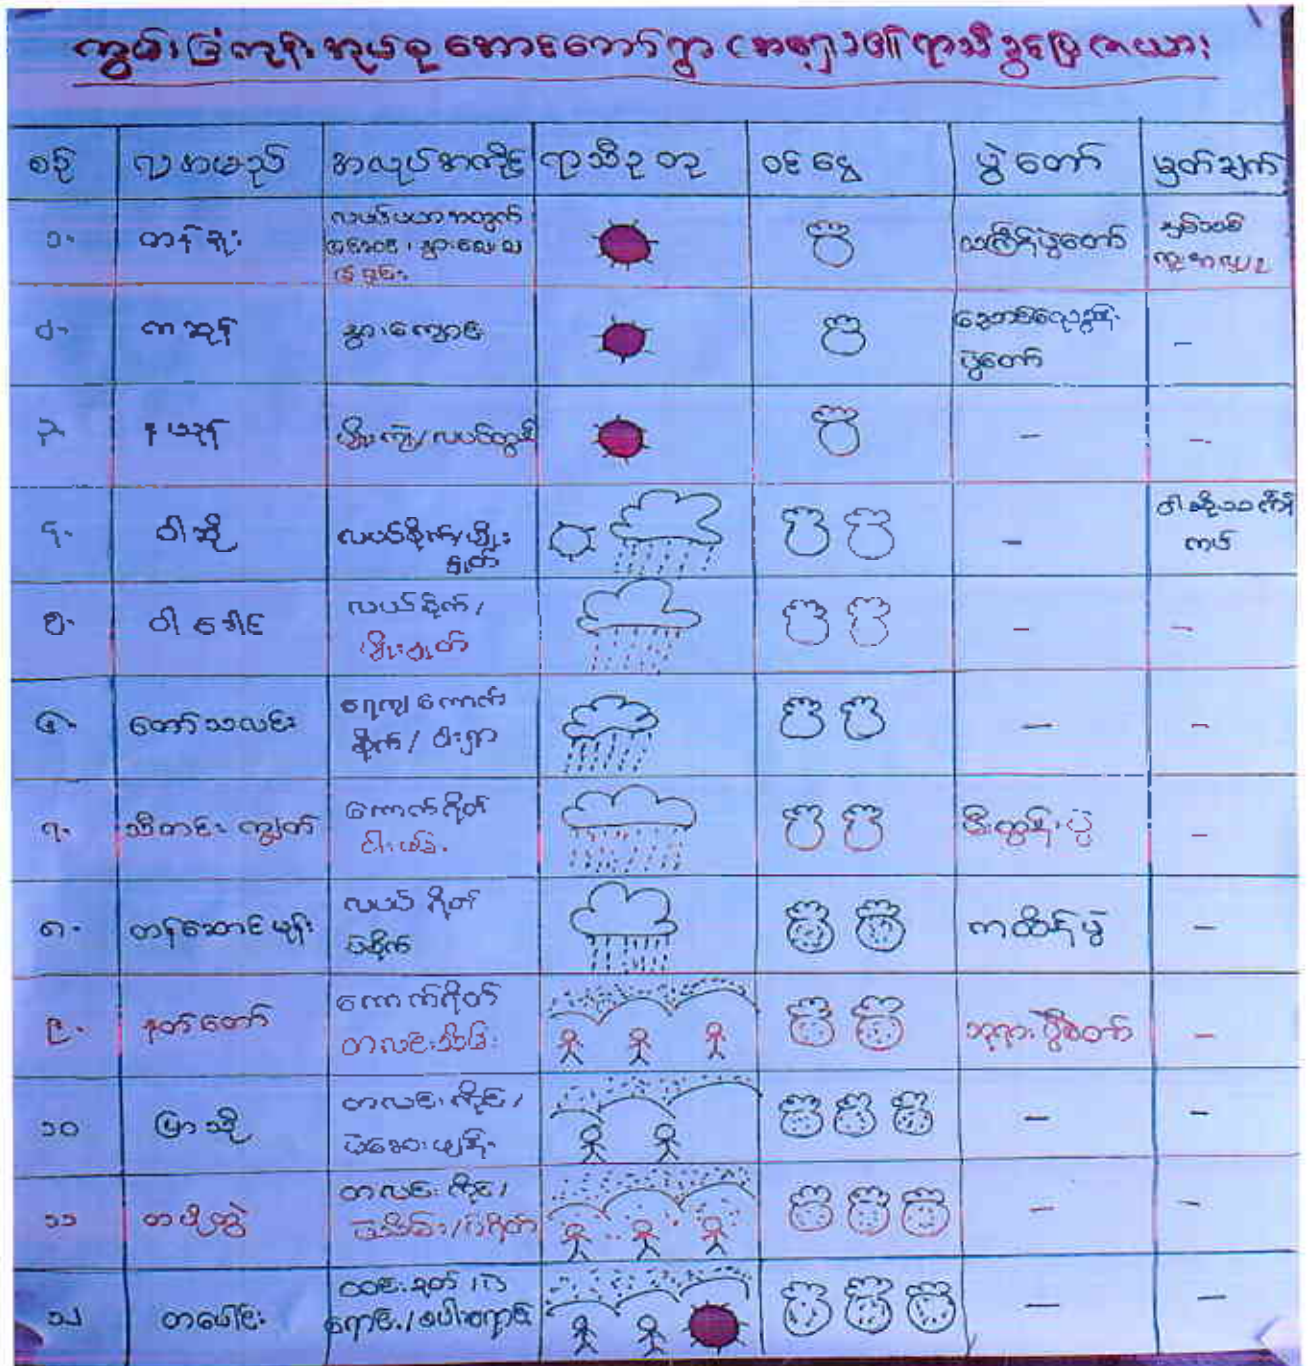 ကွမ်းခြံကုန်းအုပ်စု အောင်တော်ရွာ (အမှု) ၁၂၏ ရာသီခွင်ပြဇယား
စဉ် လအမည် အလုပ်အကိုင် ရာသီဥတု ဝင်ငွေ ပွဲတော် မှတ်ချက်
၁။ တန်ခူး သင်္ကြန်ပွဲတော် နှစ်သစ်
ကူးအလှူ
၂။ ကဆုန် နွားကျောင်း
ပွဲတော် -
၃။ နယုန် ပျိုးကျဲ/လယ်ထွန် - -
၄။ ဝါဆို လယ်စိုက်/ပျိုး
နှုတ် - ဝါဆိုသင်္ကန်း
ကပ်
၅။ ဝါခေါင် လယ်စိုက်/
ပျိုးနှုတ် - -
၆။ တော်သလင်း ရေကျကောက်
စိုက်/ဝါးရှာ - -
၇။ သီတင်းကျွတ် ကောက်ရိတ်
မီးထွန်းပွဲ -
၈။ တန်ဆောင်မုန်း လယ်ရိတ်
ပဲစိုက် ကထိန်ပွဲ -
၉။ နတ်တော် ကောက်ရိတ်
တလင်းသိမ်း ဘုရားပွဲတော် -
၁၀ ပြာသို တလင်းတိုင်/
ပဲဆေးဖျန်း - -
၁၁ တပို့တွဲ တလင်းတိုင်/
ပဲသိမ်း/ပဲရိတ် - -
၁၂ တပေါင်း ထင်းခုတ်/ပဲ
ရောင်း/စပါးရောင်း - -